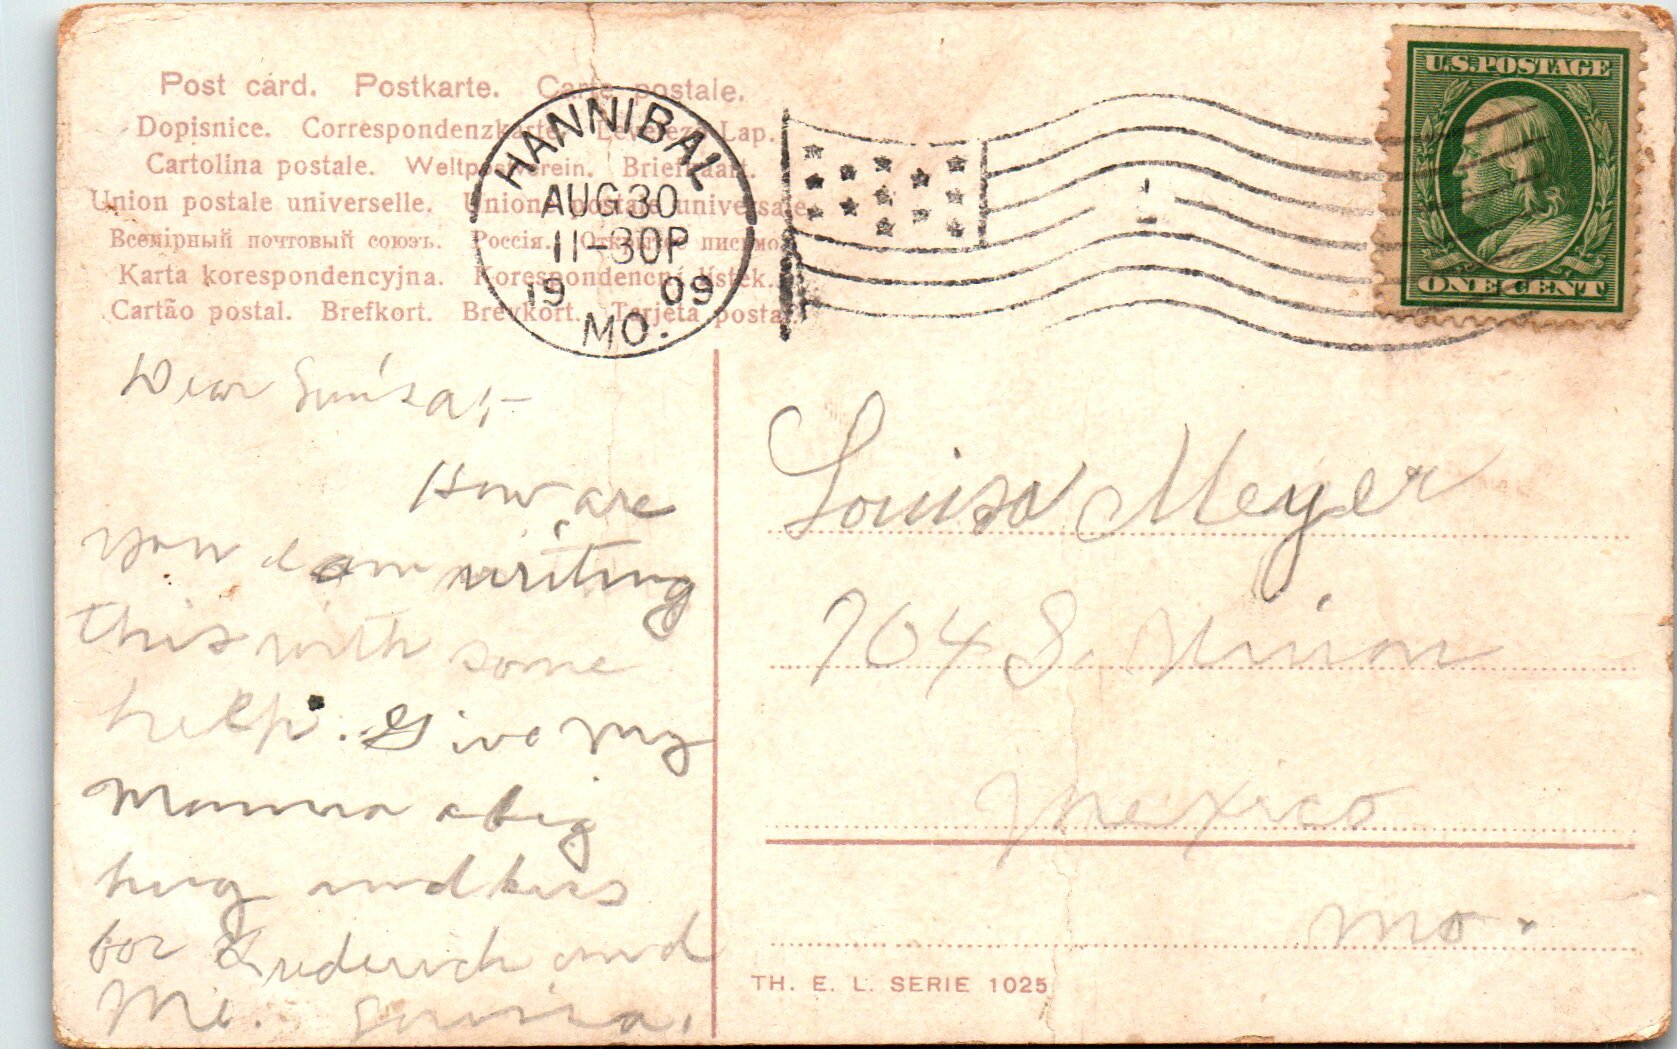 Post card. Postkarte. Carte postale.
Dopisnice. Correspondenzkarte. Levelező-Lap.
Cartolina postale. Weltpostverein. Briefkaart.
Union postale universelle. Unione postale universale.
Всемірный почтовый союзъ. Россія. Открытое письмо.
Karta korespondencyjna. Korespondencní lístek.
Cartão postal. Brefkort. Brevkort. Tarjeta postal.
HANNIBAL
AUG 30
11-30P
19 09
MO.
U.S. POSTAGE
ONE CENT
Dear Louisa;-
How are
you I am writing
this with some
help. Give my
Mamma a big
hug and kiss
for Frederich and
Me. Louisa.
Louisa Meyer
704 S. Union
Mexico
Mo.
TH. E. L. SERIE 1025